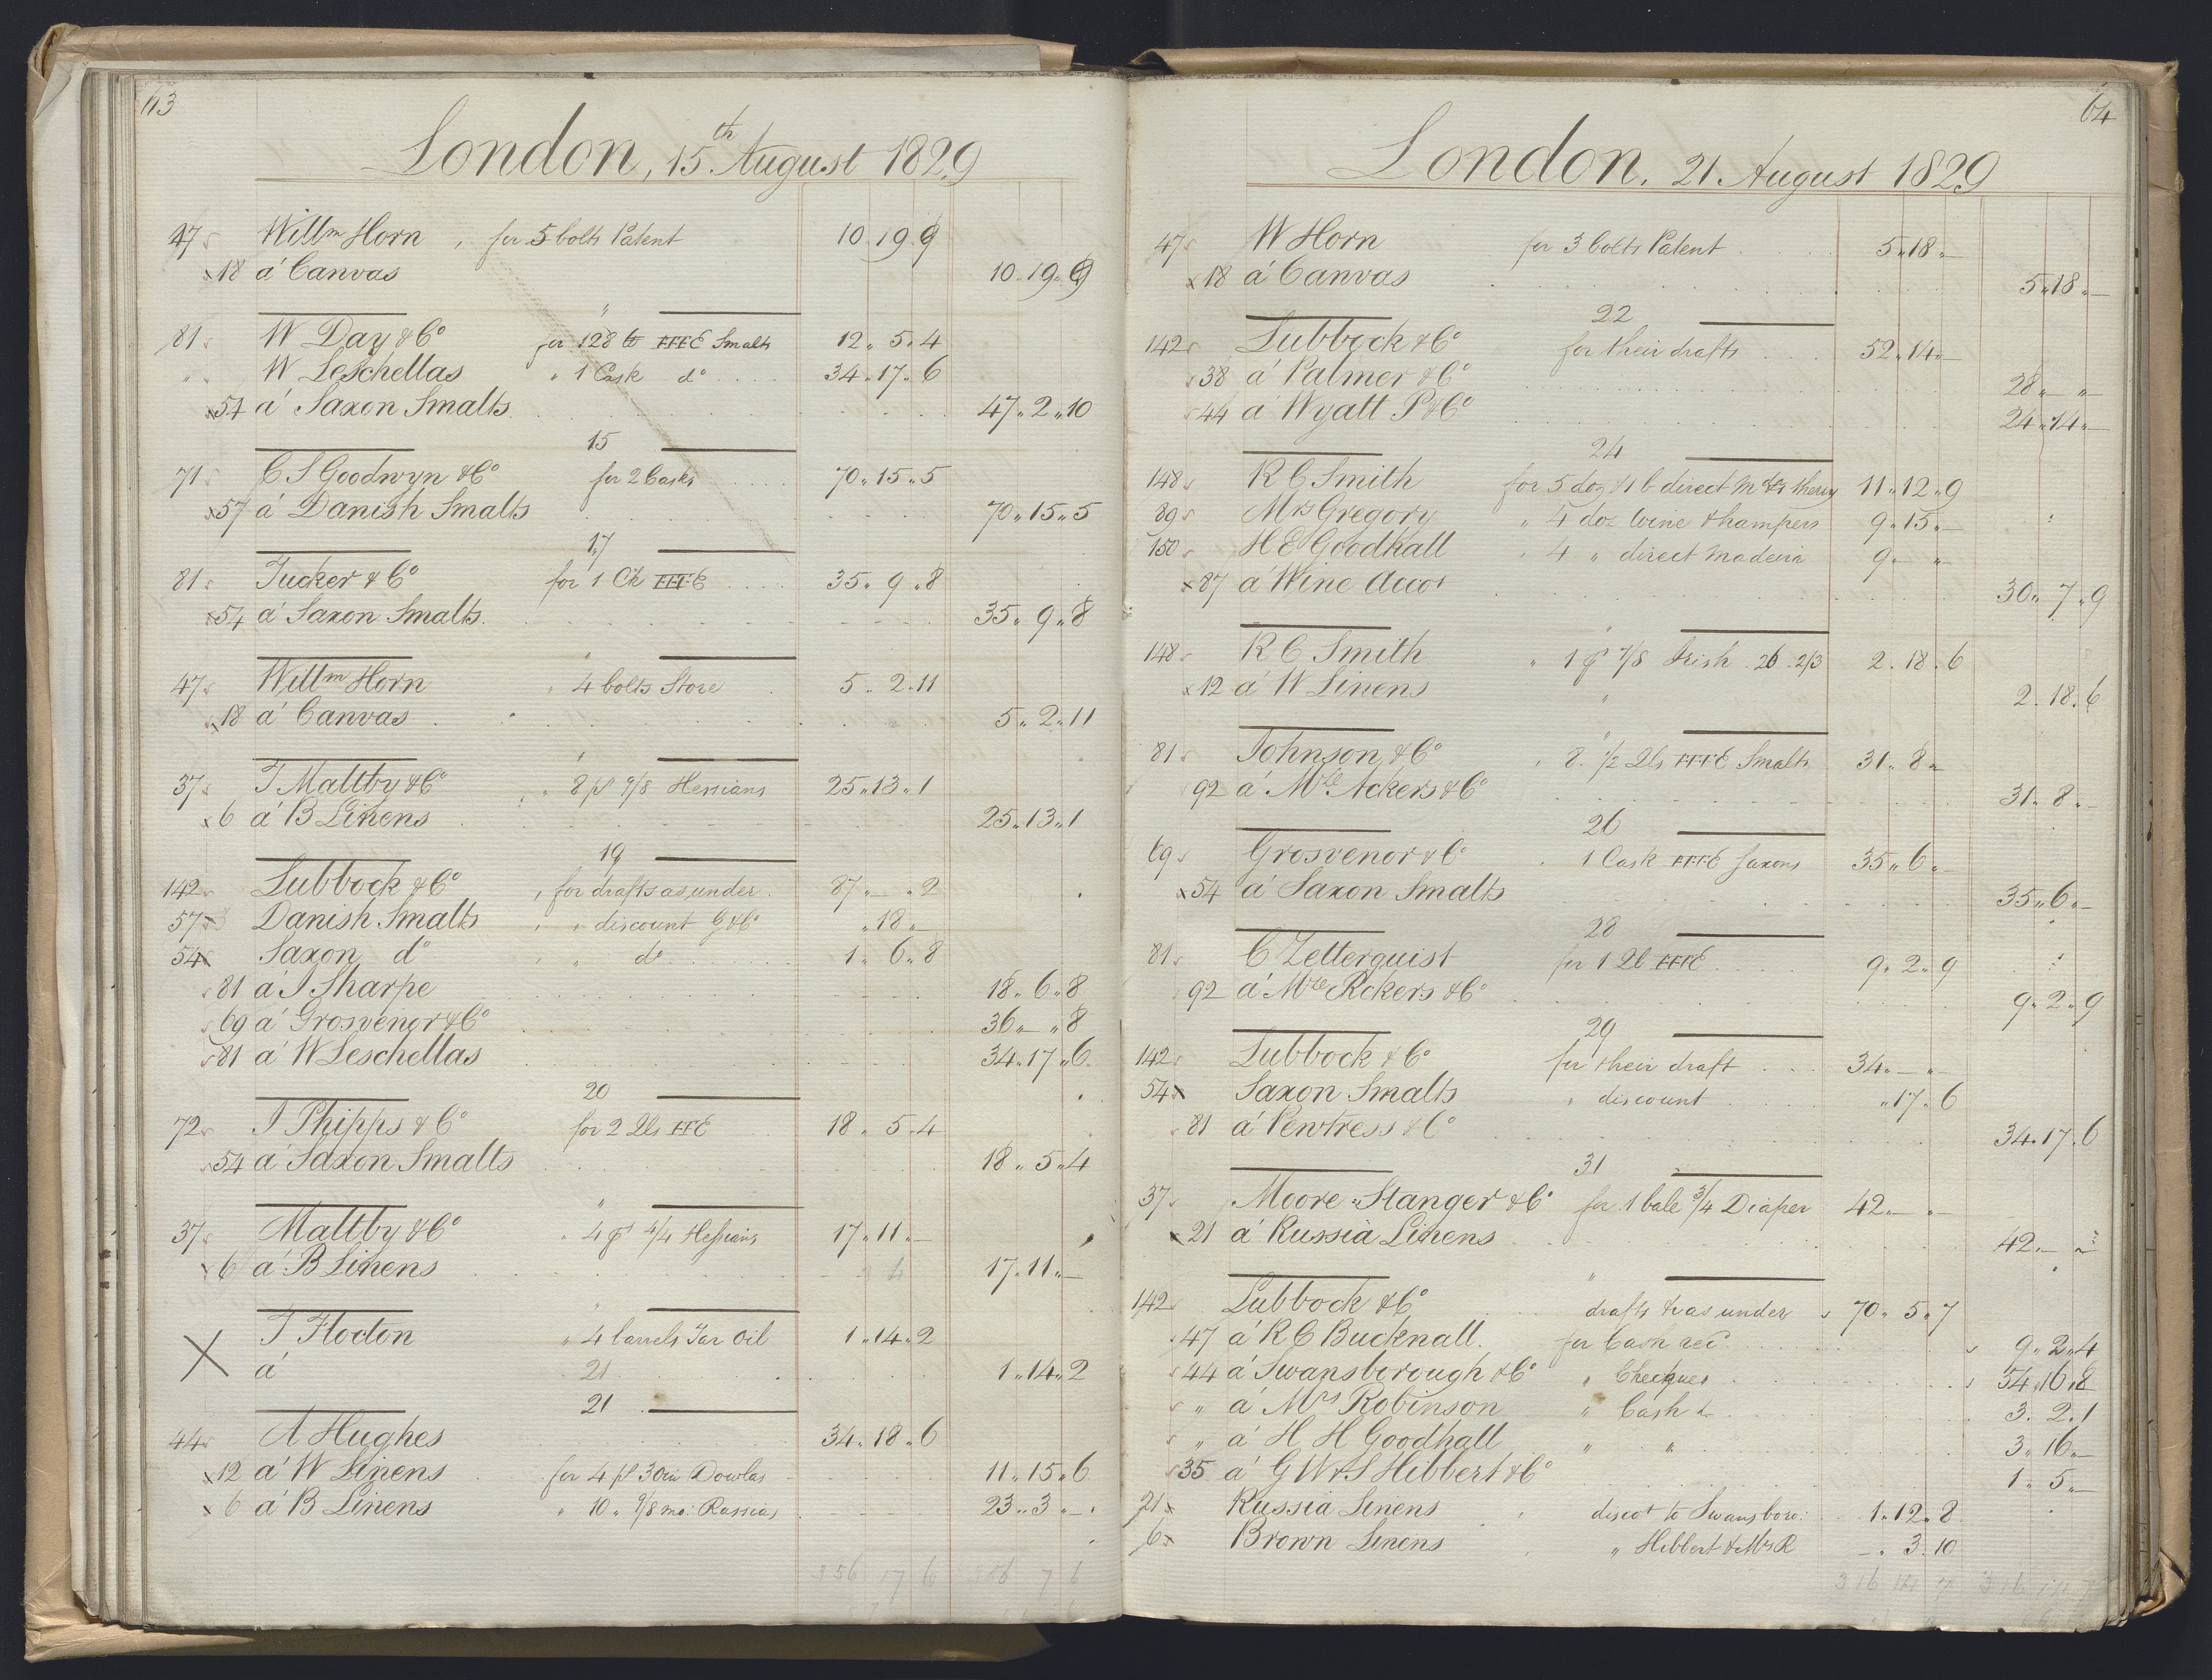 63
London, 15th August 1829
47 Willm Horn, for 5 bolts Patent 10.19.9
18 á Canvas 10.19.9
"
81 W Day & Co for 128 lb FFFE Smalts 12.5.4
" W Leschellas " 1 Cask do 34.17.6
54 á Saxon Smalts 47.2.10
15
71 C S Goodwyn & Co for 2 Casks 70.15.5
57 á Danish Smalts 70.15.5
17
81 Tucker & Co for 1 Ck FFFE 35.9.8
54 á Saxon Smalts 35.9.8
"
47 Willm Horn " 4 bolts Store 5.2.11
18 á Canvas 5.2.11
"
37 T Maltby & Co " 8 ps 9/8 Hessians 25.13.1
6 á B Linens 25.13.1
19
142 Lubbock & Co, for drafts as under 87.–.2
57 Danish Smalts " " discount G & Co " 18 " –
54 Saxon do " " do 1.6.8
81 á J Sharpe 18.6.8
69 á Grosvenor & Co 36.–.8
81 á W Leschellas 34.17.6
20
72 J Phipps & Co for 2 Qls FFE 18.5.4
54 á Saxon Smalts 18.5.4
"
37 Maltby & Co " 4 ps 4/4 Hessians 17.11.–
6 á B Linens 17.11.–
"
X T Flocton " 4 barrels Tar Oil 1.14.2
á 21 1.14.2
21
44 A Hughes 34.18.6
12 á W Linens for 4 ps 30in Dowlas 11.15.6
6 á B Linens " 10 " 9/8 mo: Russias 23.3.–
356 17 6 356 7 6
64
London. 21 August 1829
47 W Horn for 3 bolts Patent 5.18.–
18 á Canvas 5.18.–
22
142 Lubbock & Co for their drafts 52.14.–
38 á Palmer & Co 28.–.–
44 á Wyatt P & Co 24.14.–
24
148 R C Smith for 5 doz & 1 b direct M & Sherry 11.12.9
89 Mrs Gregory " 4 doz Wine & hampers 9.15.–
150 H E Goodhall " 4 " direct Madeira 9.–.–
87 á Wine Accot 30.7.9
"
148 R C Smith " 1 ps 7/8 Irish 26. 2/3 2.18.6
12 á W Linens " 2.18.6
"
81 Johnson, & Co " 8. 1/2 Qls FFFE Smalts 31.8.–
92 á Mce Ackers & Co 31.8.–
26
69 Grosvenor & Co " 1 Cask FFFE Saxons 35.6.–
54 á Saxon Smalts 35.6.–
28
81 C Zetterquist for 1 Ql FFFE 9.2.9
92 á Mce Ackers & Co 9.2.9
29
142 Lubbock & Co for their draft 34.–.–
54 Saxon Smalts " discount " 17.6
81 á Pewtress & Co 34.17.6
31
37 Moore " Stanger & Co for 1 bale 3/4 Diaper 42.–.–
21 á Russia Linens 42.–.–
"
142 Lubbock & Co drafts &c as under 70.5.7
47 á R C Bucknall. for Cash rec 9.2.4
44 á Swansborough & Co " Cheques 54.16.8
" á Mrs Robinson " Cash 3.2.1
" á H H Goodhall " " 3.16.–
35 á G W & S Hibbert & Co 1.5.–
21 Russia Linens discot to Swansboro: 1.12.8
6 Brown Linens " Hibbert & Mrs R –.3.10
316 14 7 316 14 7